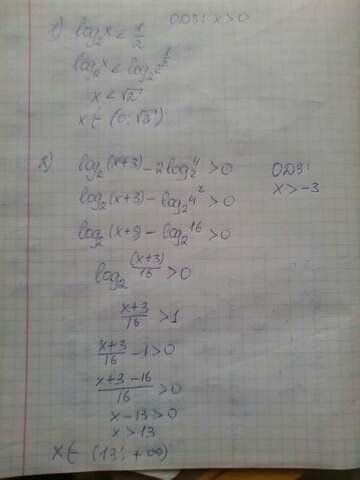 1) log₂x < 1/2 ОДЗ: x > 0
log₂x < log₂2^(1/2)
x < √2
x ∈ (0; √2)
2) log₂(x+3) − 2log₂4 > 0 ОДЗ:
log₂(x+3) − log₂4² > 0 x > −3
log₂(x+3) − log₂16 > 0
log₂ (x+3)/16 > 0
(x+3)/16 > 1
(x+3)/16 − 1 > 0
(x+3−16)/16 > 0
x−13 > 0
x > 13
x ∈ (13; +∞)